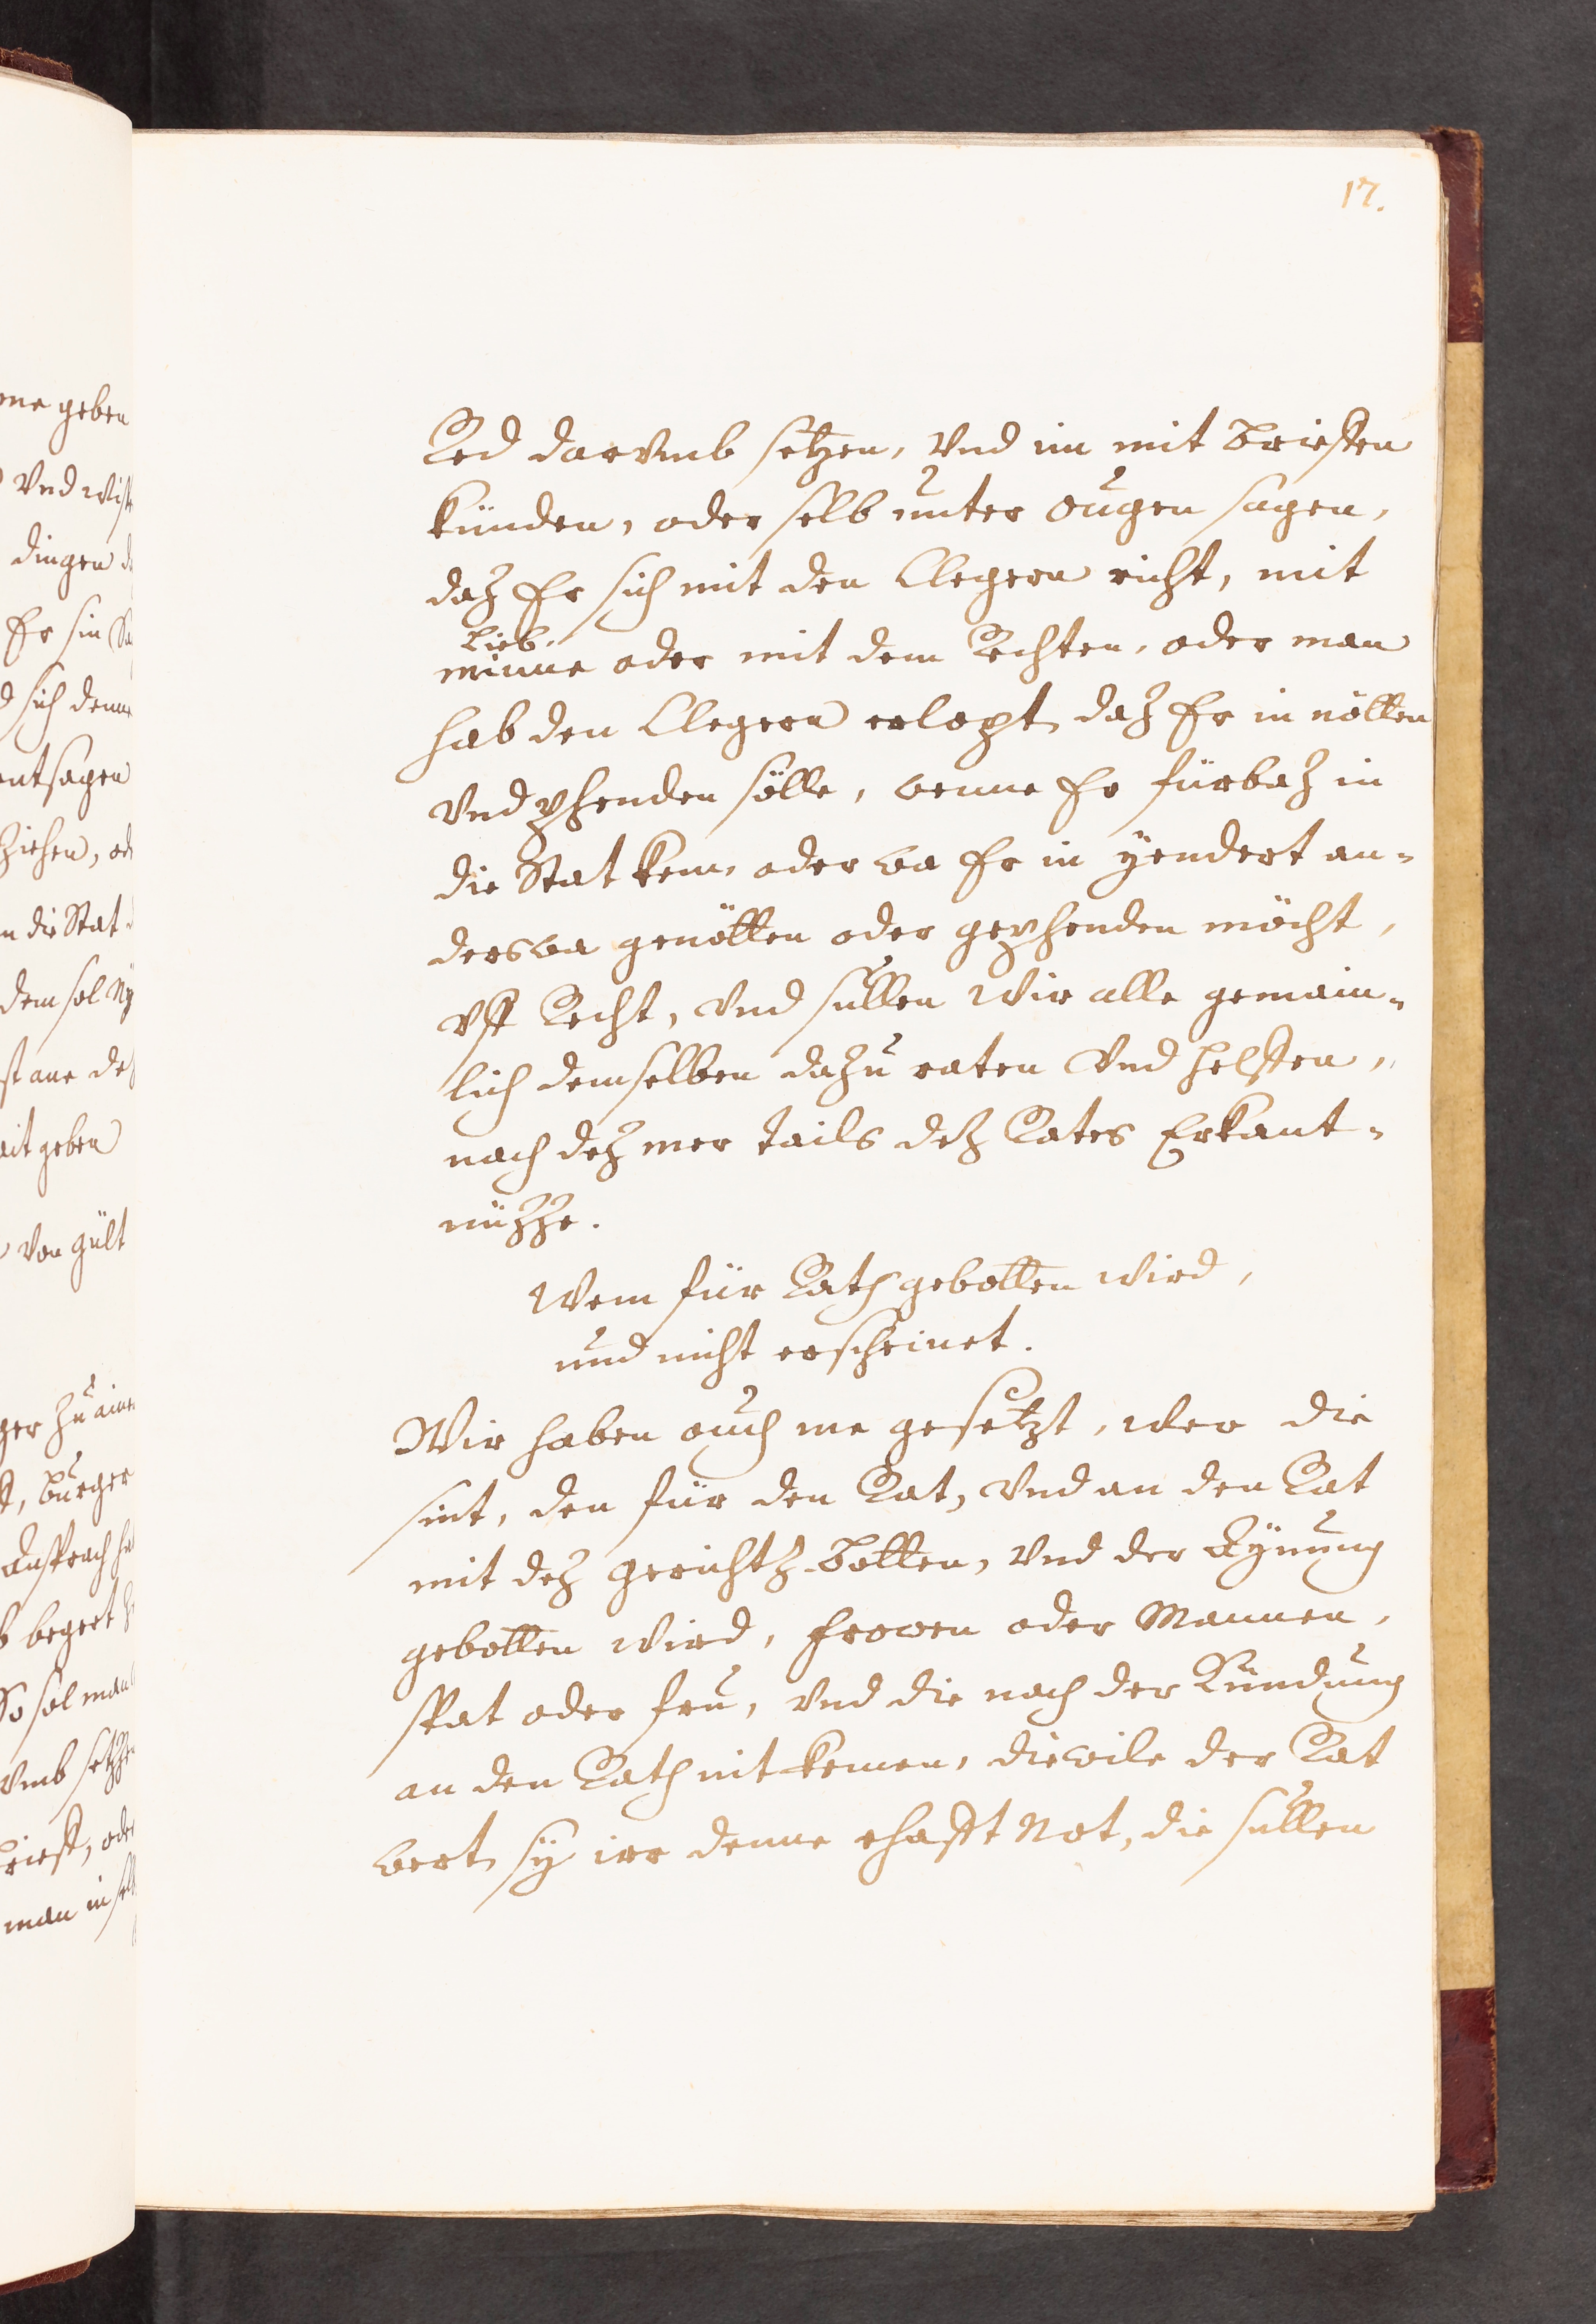 17.
Red darvmb setzen, Vnd im mit brieffen
künden, oder selb unter ougen sagen,
daz Er sich mit den Clegern richt, mit
Lieb.
minne oder mit dem Rechten, oder man
hab den Clegern erlopt, daz Er in nötten
Vnd phenden sölle, wenne Er fürbaz in
die Stat kem, oder wa Er in yendert an-
derswa genötten oder gephenden möcht,
vff Recht, Vnd süllen Wir alle gemain-
lich demselben dazu raten Vnd helffen,
nach dez mer tails dez Rates Erkant-
nüzze.
Wem für Rath gebotten wird,
und nicht erscheinet.
Wir haben ouch me gesetzt, Wer die
sint, den für den Rat, Vnd an den Rat
mit dez gerichtz-botten, Vnd der Aynung
gebotten wird, frowen oder Mannen,
spat oder fru, Vnd die nach der Kündung
an den Rath nit komen, diewile der Rat
wert, sy irr denne ehafft Not, die süllen
geben
Vnd
dingen
Er sin
sich denne
entsagen
ziehen,
die Stat
dem sol
ane
geben
Von gült
zu
burger
begert
So sol man
vmb
man in